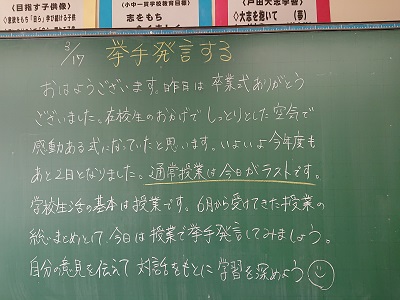 〈目指す子供像〉
◇意欲をもち「自ら」学び続ける子供
(小中一貫学校教育目標)
志をもち
(戸田大志学習)
◇大志を抱いて (夢)
3/17 挙手発言する
おはようございます。昨日は卒業式ありがとう
ございました。在校生のおかげでしっとりとした空気で
感動ある式になっていたと思います。いよいよ今年度も
あと2日となりました。通常授業は今日がラストです。
学校生活の基本は授業です。6月から受けてきた授業の
総まとめとして、今日は授業で挙手発言してみましょう。
自分の意見を伝えて対話をもとに学習を深めよう